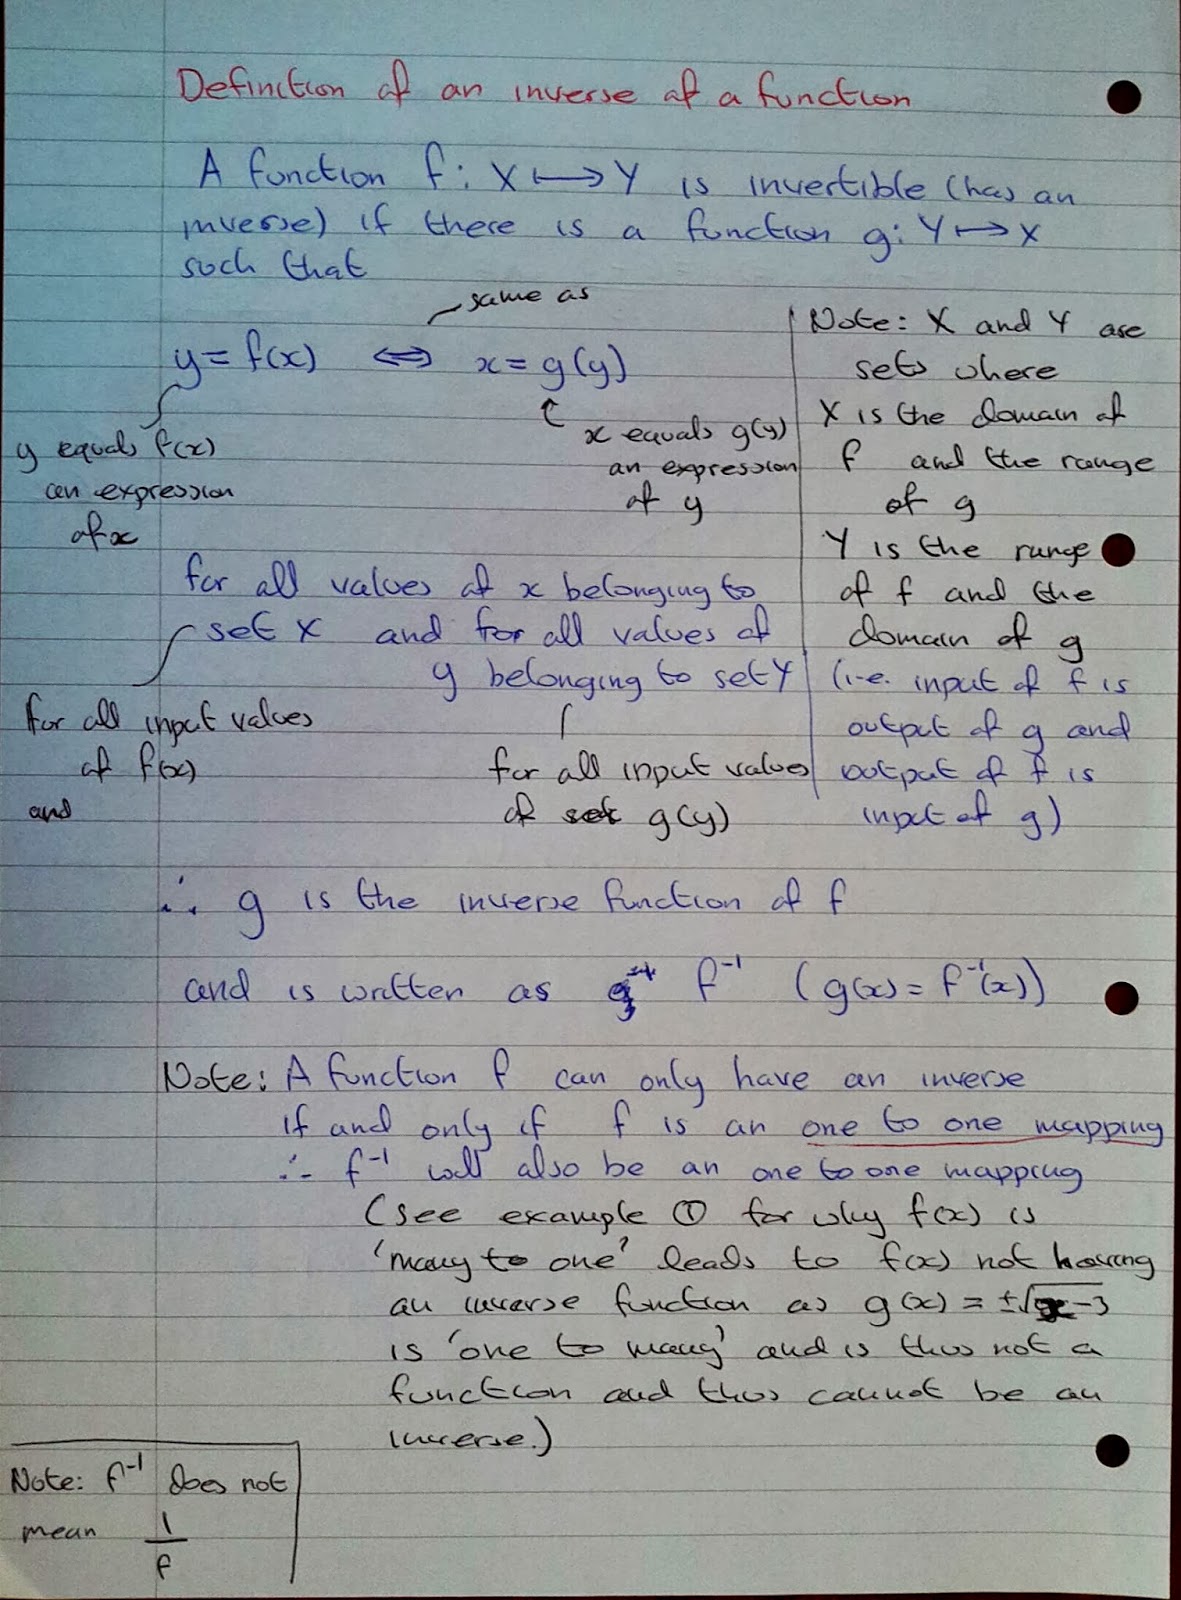 Definition of an inverse of a function
A function f: X ↦ Y is invertible (has an
inverse) if there is a function g: Y ↦ X
such that
same as
y = f(x) ⇔ x = g(y)
y equals f(x)
an expression
of x
x equals g(y)
an expression
of y
for all values of x belonging to
set X and for all values of
y belonging to set Y
for all input values
of f(x)
and
for all input values
of set g(y)
Note: X and Y are
sets where
X is the domain of
f and the range
of g
Y is the range
of f and the
domain of g
(i.e. input of f is
output of g and
output of f is
input of g)
∴ g is the inverse function of f
and is written as f⁻¹ (g(x) = f⁻¹(x))
Note: A function f can only have an inverse
if and only if f is an one to one mapping
∴ f⁻¹ will also be an one to one mapping
(see example ① for why f(x) is
'many to one' leads to f(x) not having
an inverse function as g(x) = ±√x-3
is 'one to many' and is thus not a
function and thus cannot be an
inverse.)
Note: f⁻¹ does not
mean 1/f